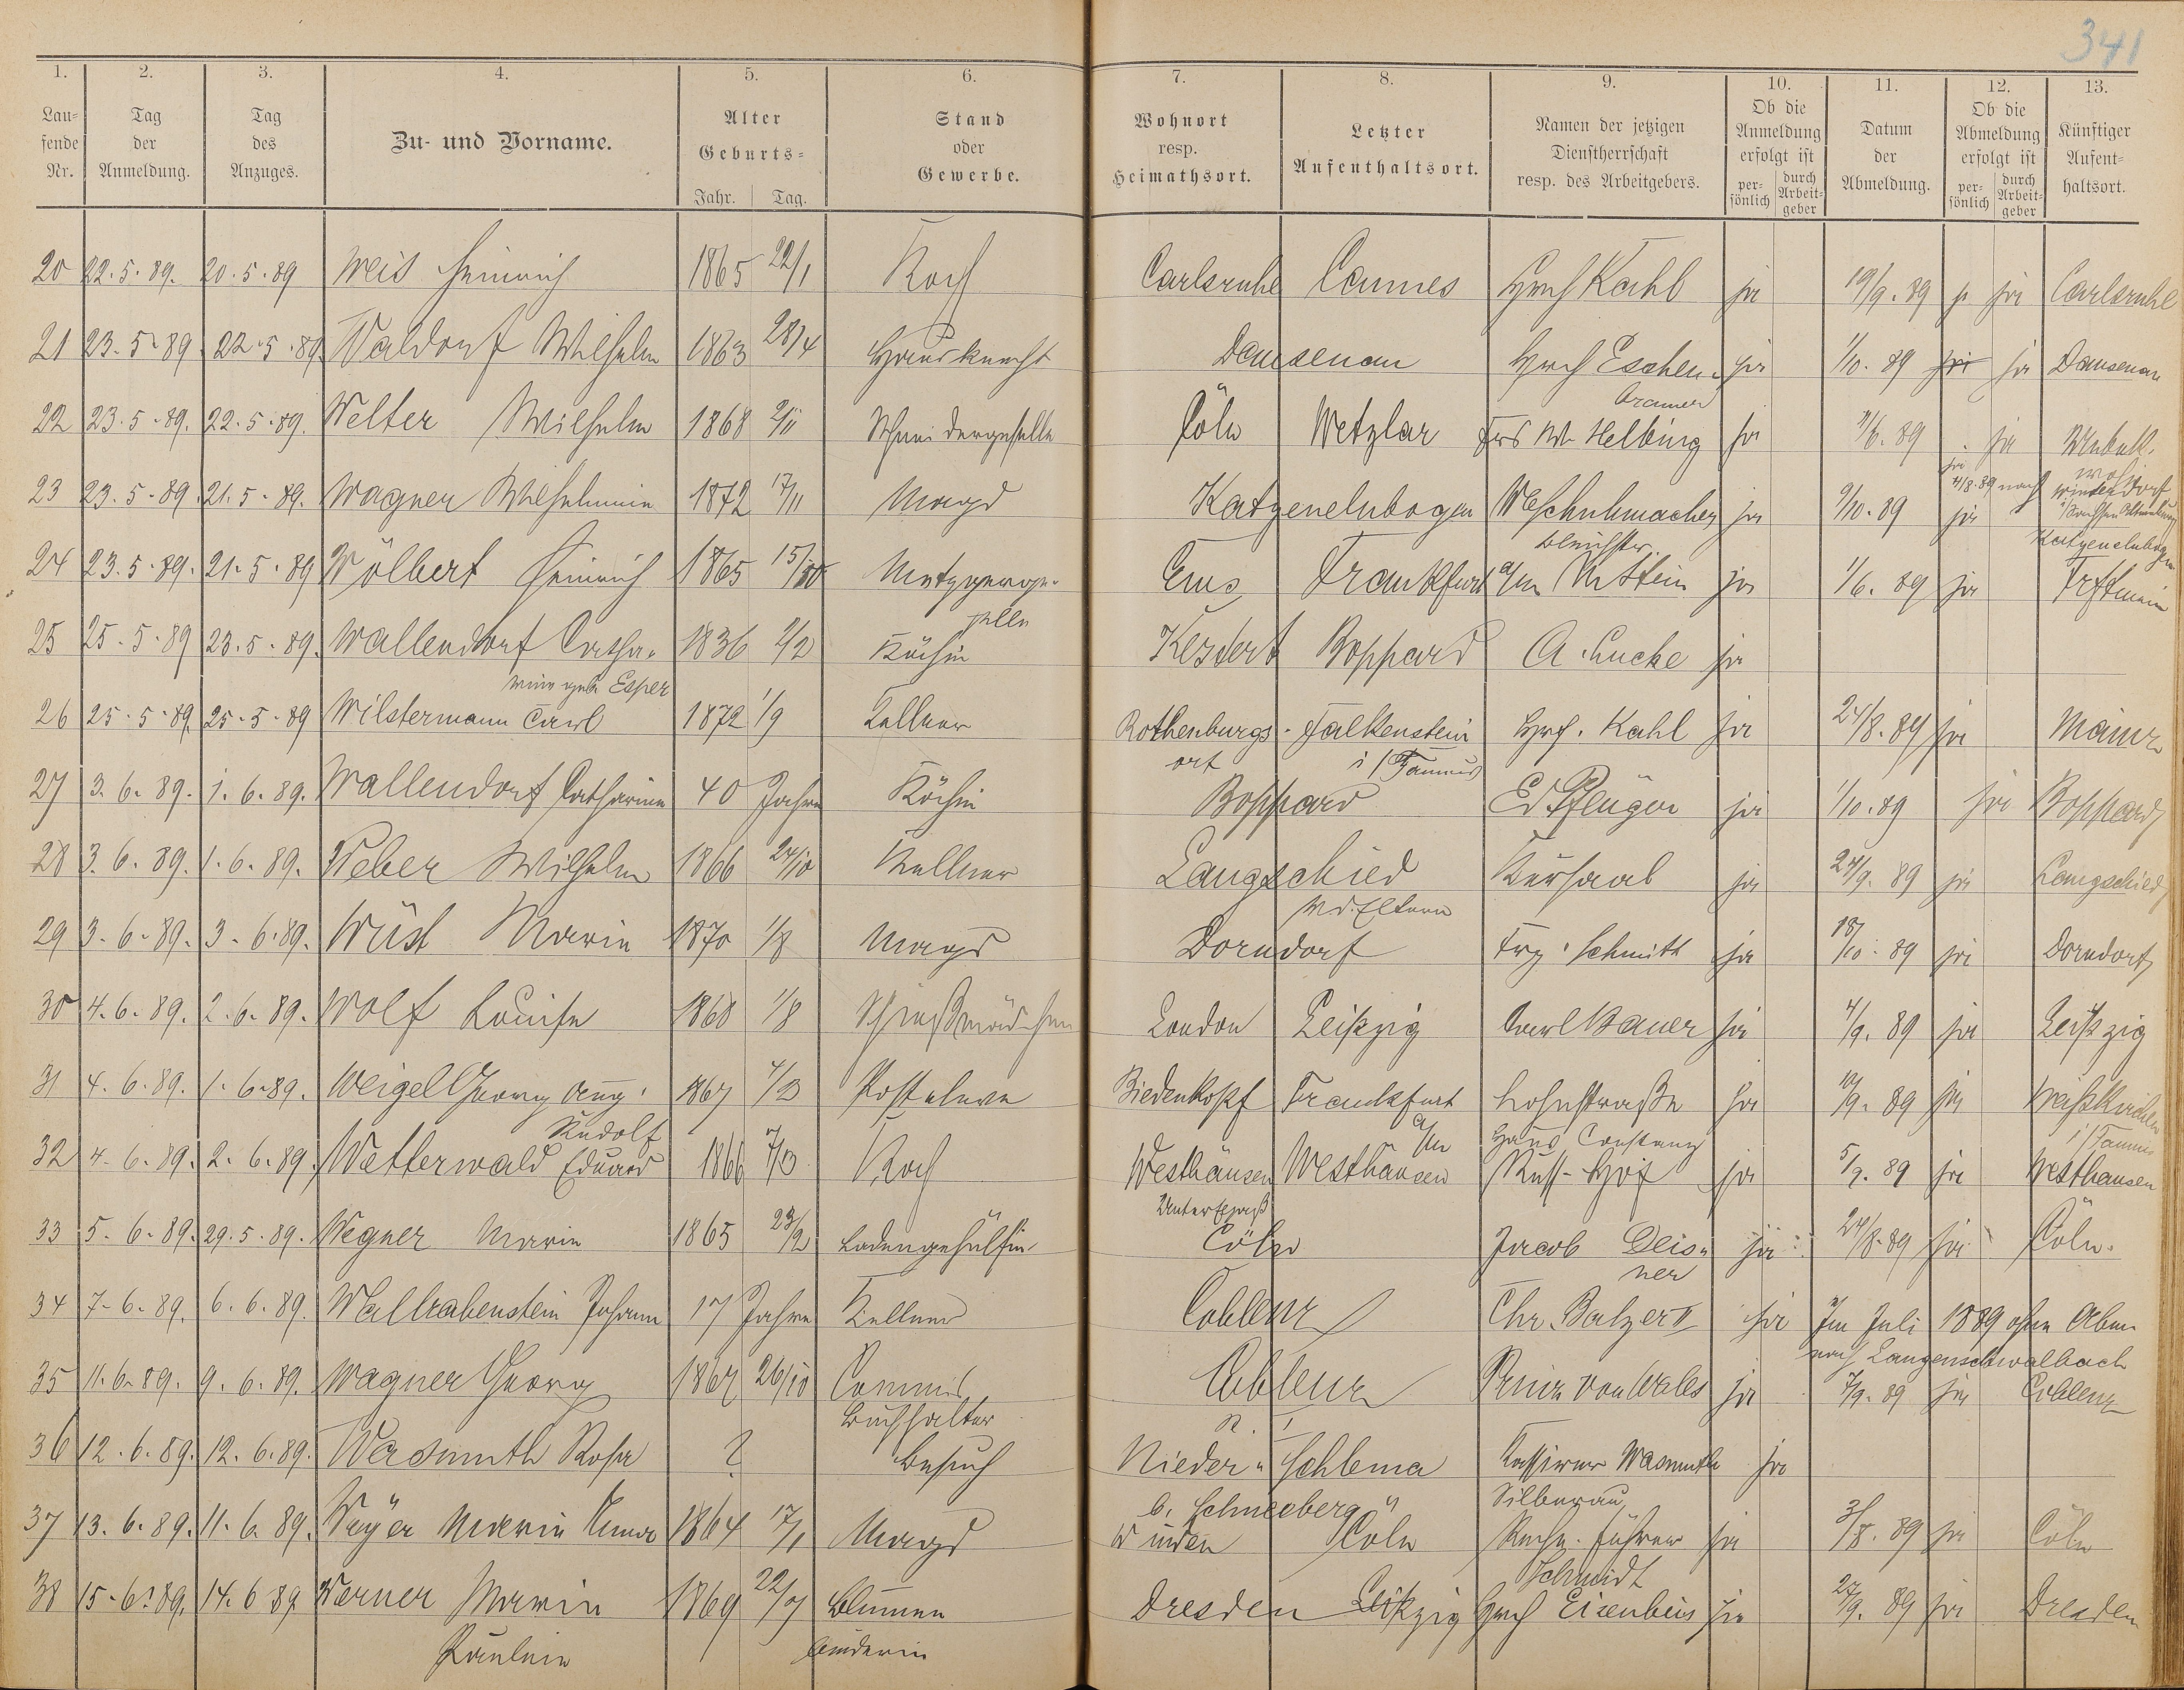 341
1. 2. 3. 4. 5. 6. 7. 8. 9. 10. 11. 12. 13.
Laufende Nr. Tag der Anmeldung. Tag des Anzuges. Zu- und Vorname. Alter Geburts- Jahr. Tag. Stand oder Gewerbe. Wohnort resp. Heimathsort. Letzter Aufenthaltsort. Namen der jetzigen Dienstherrschaft resp. des Arbeitgebers. Ob die Anmeldung erfolgt ist persönlich durch Arbeitgeber Datum der Abmeldung. Ob die Abmeldung erfolgt ist persönlich durch Arbeitgeber Künftiger Aufenthaltsort.
20 22.5.89. 20.5.89 Weis Heinrich 1865 22/1 Koch Carlsruhe Cannes Kahl ja 19/9.89 ja Carlsruhe
21 23.5.89 22.5.89 Waldorf Wilhelm 1863 28/4 Hausknecht Dausenau Eschen- ja 1/10.89 ja ja Dausenau
brauer
22 23.5.89. 22.5.89. Welter Wilhelm 1868 2/11 Schneidergeselle Cöln Wetzlar Helbing ja /6.89 ja
23 23.5.89. 21.5.89. Wagner Wilhelmine 1872 17/11 Magd Katzenelnbogen Schuhmacher ja 9/10.89 ja Katzenelnbogen
24 23.5.89. 21.5.89 Wölbert Heinrich 1865 15/10 Metzgerge- Ems Frankfurt a/m Stein ja 1/6.89 ja
selle
25 25.5.89 23.5.89. Wallendorf Catha- 1836 2/2 Köchin Kestert Boppard A. Lucke ja
rine geb. Esper
26 25.5.89. 25.5.89 Wilstermann Carl 1872 1/9 Kellner Rothenburgs- Falkenstein Kahl ja 24/8.89 ja Mainz
ort i/Taunus
27 3.6.89. 1.6.89. Wallendorf Catharine 40 Jahre Köchin Boppard Ed Pflüger ja 1/10.89 ja Boppard
28 3.6.89. 1.6.89. Weber Wilhelm 1866 24/10 Kellner Langschied Kursaal ja 24/9.89 ja Langschied
29 3.6.89. 3.6.89. Wüst Maria 1870 1/8 Magd Dorndorf Schmitt ja 18/10.89 ja Dorndorf
30 4.6.89. 2.6.89. Wolf Louise 1868 1/8 London Leipzig Carl Bauer ja 4/9.89 ja Leipzig
31 4.6.89. 1.6.89. Weigel Georg Aug. 1867 Posteleve Biedenkopf Frankfurt ja 10/9.89 ja
Rudolf a/m Haus Constanz i/Taunus
32 4.6.89. 2.6.89. Wetterwald Eduard 1866 7/3 Koch Westhausen Westhausen Russ. Hof ja 5/9.89 ja Westhausen
33 5.6.89. 29.5.89. Wegner Maria 1865 23/2 Ladengehülfin Cöln Jacob Deis- ja 24/8.89 ja Cöln.
ner
34 7.6.89. 6.6.89. Wallrabenstein Johann 17 Jahre Kellner Coblenz Chr. Balzer II ja Im Juli 1889 ohne Abm.
nach Langenschwalbach
35 11.6.89. 9.6.89. Wagner Georg 1867 26/10 Commis Coblenz Prinz von Wales ja 7/9.89 ja Coblenz
Buchhalter
36 12.6.89. 12.6.89. Wasmuth Rosa ? Besuch Nieder- Schlema Kassirer Wasmuth ja
b. Schneeberg Silberau
37 13.6.89. 11.6.89. Weyer Maria Anna 1864 17/1 Magd Cöln Rechn. Führer ja 3/8.89 ja Cöln
Schmidt
38 15.6.89. 14.6.89 Werner Maria 1869 22/7 Blumen Dresden Leipzig Eisenbeis ja 27/9.89 ja Dresden
Pauline binderin